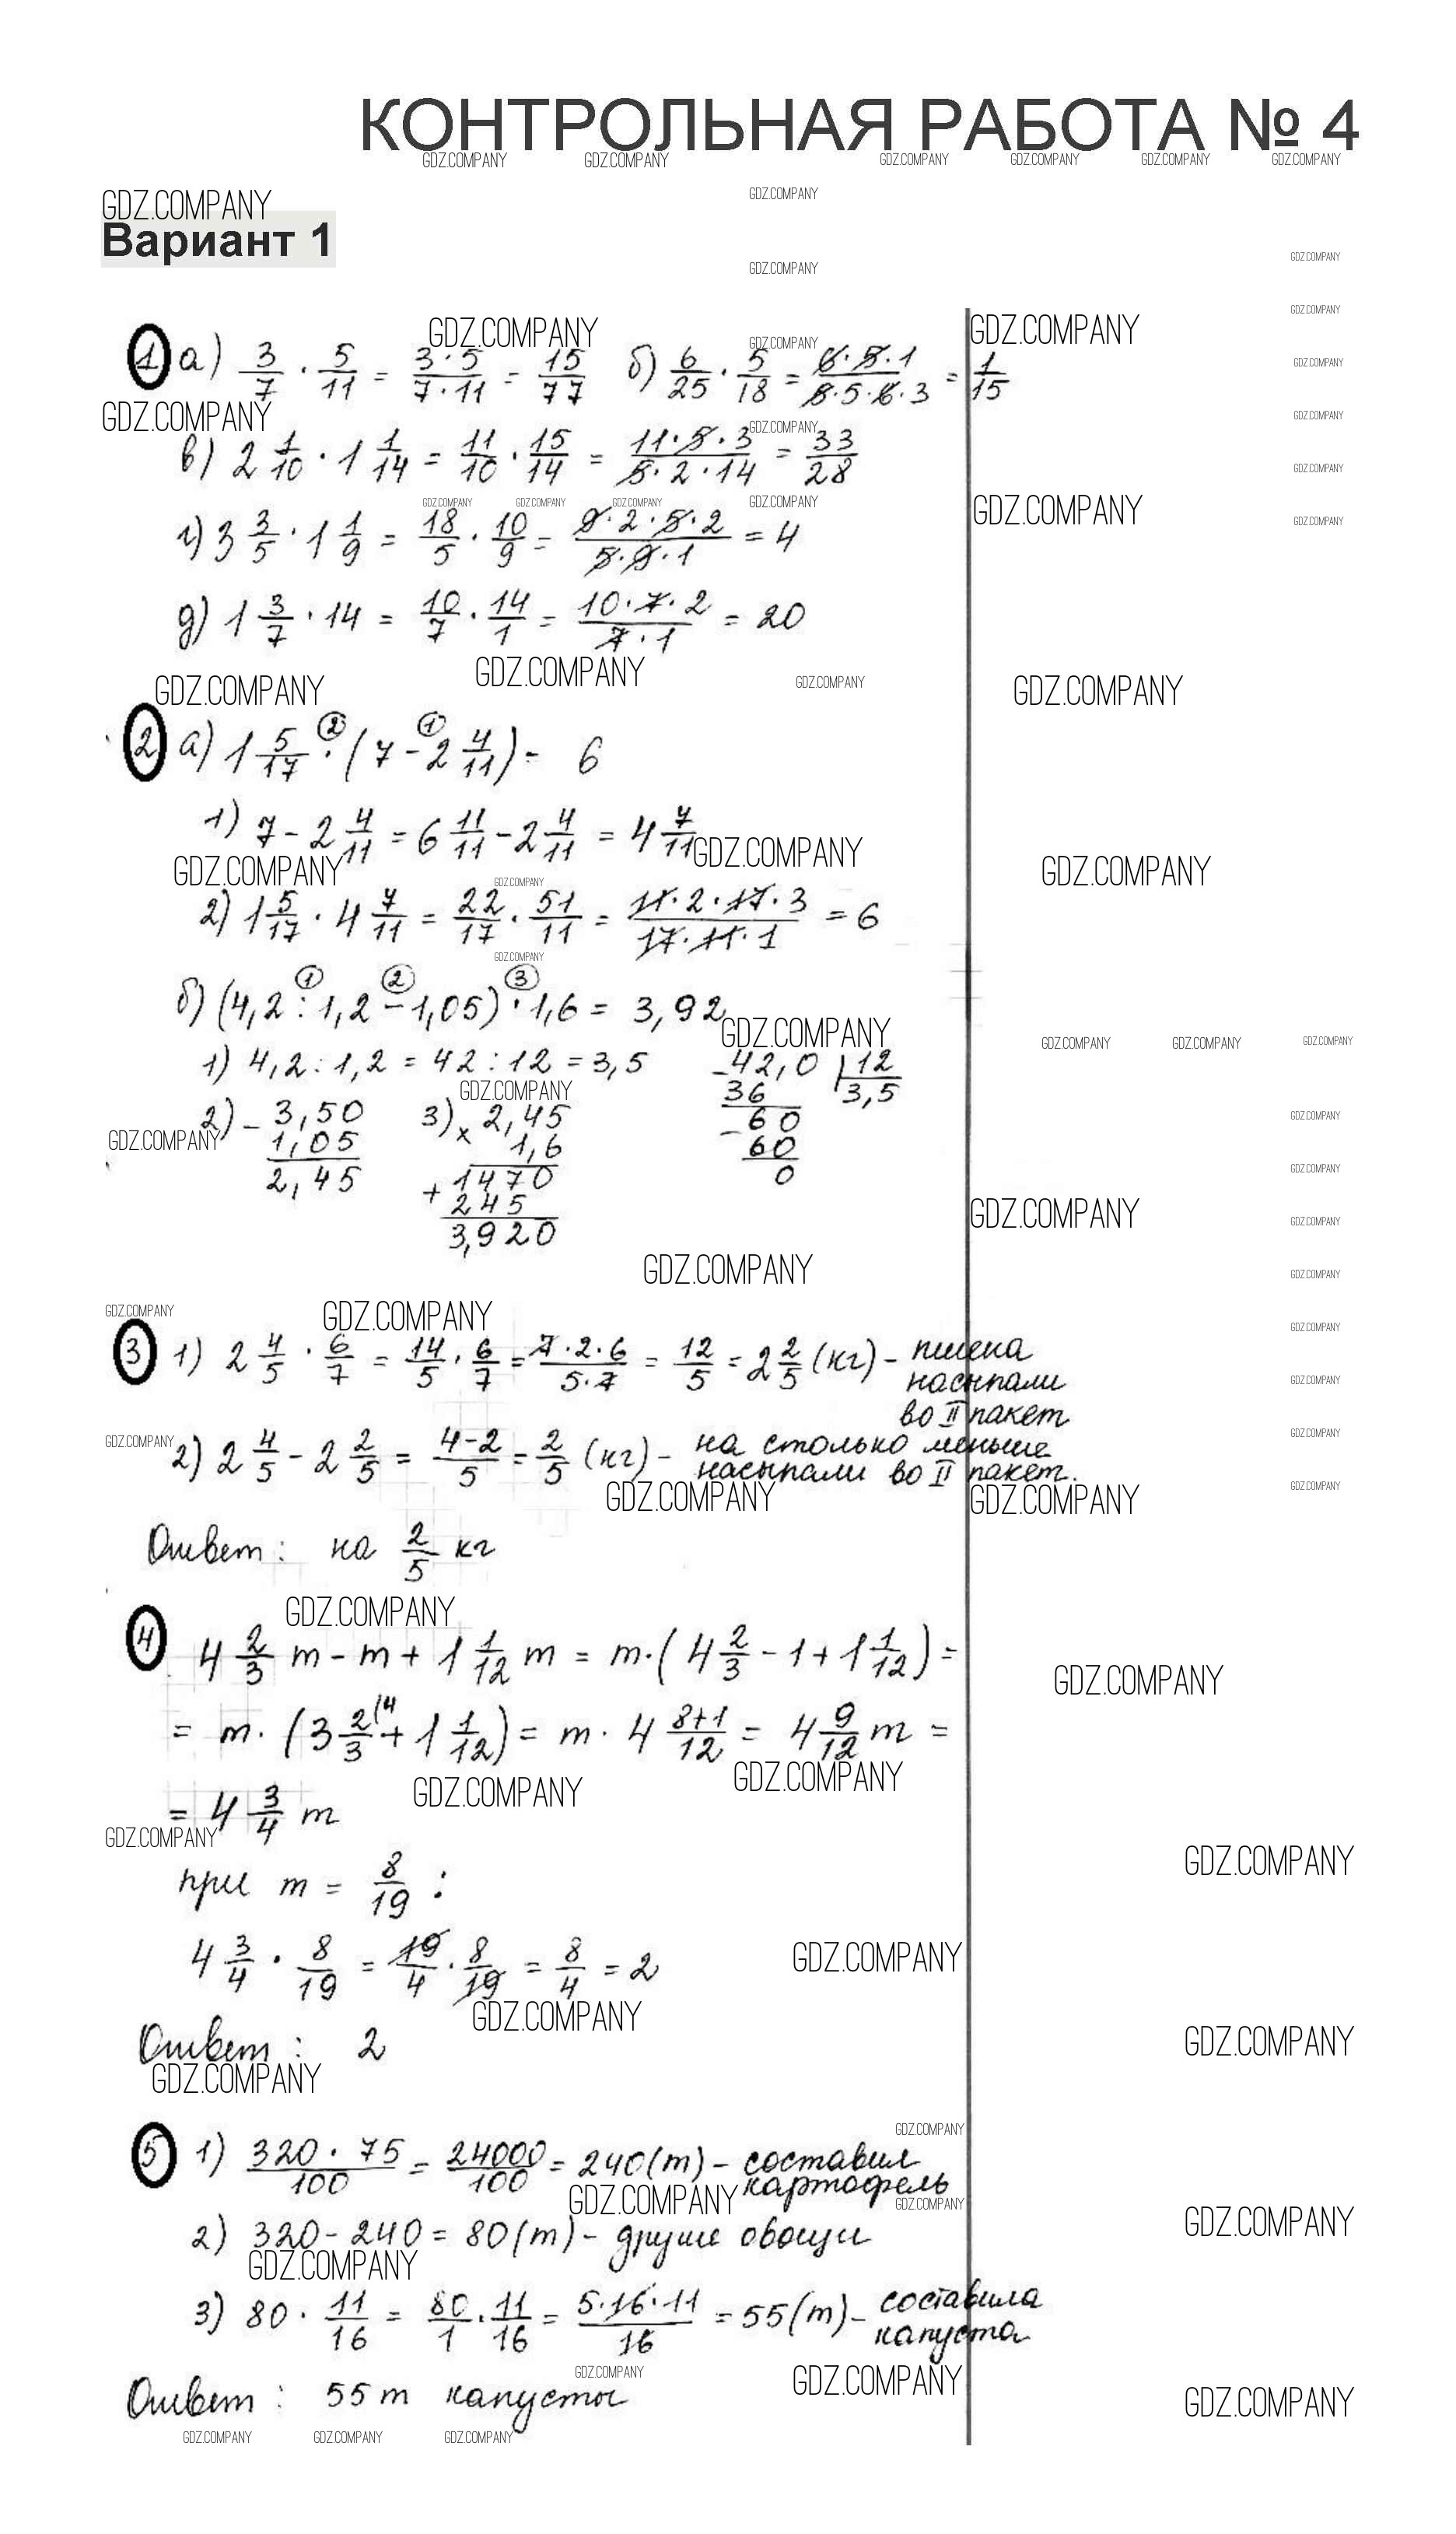 КОНТРОЛЬНАЯ РАБОТА № 4
GDZ.COMPANY
Вариант 1
① а) 3/7 · 5/11 = 3·5/7·11 = 15/77 б) 6/25 · 5/18 = 6·5·1/5·5·6·3 = 1/15
в) 2 1/10 · 1 1/14 = 11/10 · 15/14 = 11·5·3/5·2·14 = 33/28
г) 3 3/5 · 1 1/9 = 18/5 · 10/9 = 9·2·5·2/5·9·1 = 4
д) 1 3/7 · 14 = 10/7 · 14/1 = 10·7·2/7·1 = 20
② а) 1 5/17 · (7 - 2 4/11) = 6
1) 7 - 2 4/11 = 6 11/11 - 2 4/11 = 4 7/11
2) 1 5/17 · 4 7/11 = 22/17 · 51/11 = 11·2·17·3/17·11·1 = 6
б) (4,2 : 1,2 - 1,05) · 1,6 = 3,92
1) 4,2 : 1,2 = 42 : 12 = 3,5
-42,0 | 12
36 3,5
-60
60
0
2) - 3,50
1,05
2,45
3) × 2,45
1,6
+ 1470
245
3,920
③ 1) 2 4/5 · 6/7 = 14/5 · 6/7 = 7·2·6/5·7 = 12/5 = 2 2/5 (кг) - пшена
насыпали
во II пакет
2) 2 4/5 - 2 2/5 = 4-2/5 = 2/5 (кг) - на столько меньше
насыпали во II пакет.
Ответ: на 2/5 кг
④ 4 2/3 m - m + 1 1/12 m = m·(4 2/3 - 1 + 1 1/12) =
= m·(3 2/3 (4 + 1 1/12) = m · 4 8+1/12 = 4 9/12 m =
= 4 3/4 m
при m = 8/19 :
4 3/4 · 8/19 = 19/4 · 8/19 = 8/4 = 2
Ответ: 2
⑤ 1) 320·75/100 = 24000/100 = 240(т) - составил
картофель
2) 320 - 240 = 80(т) - другие овощи
3) 80 · 11/16 = 80/1 · 11/16 = 5·16·11/16 = 55(т) - составила
капуста
Ответ: 55 т капусты